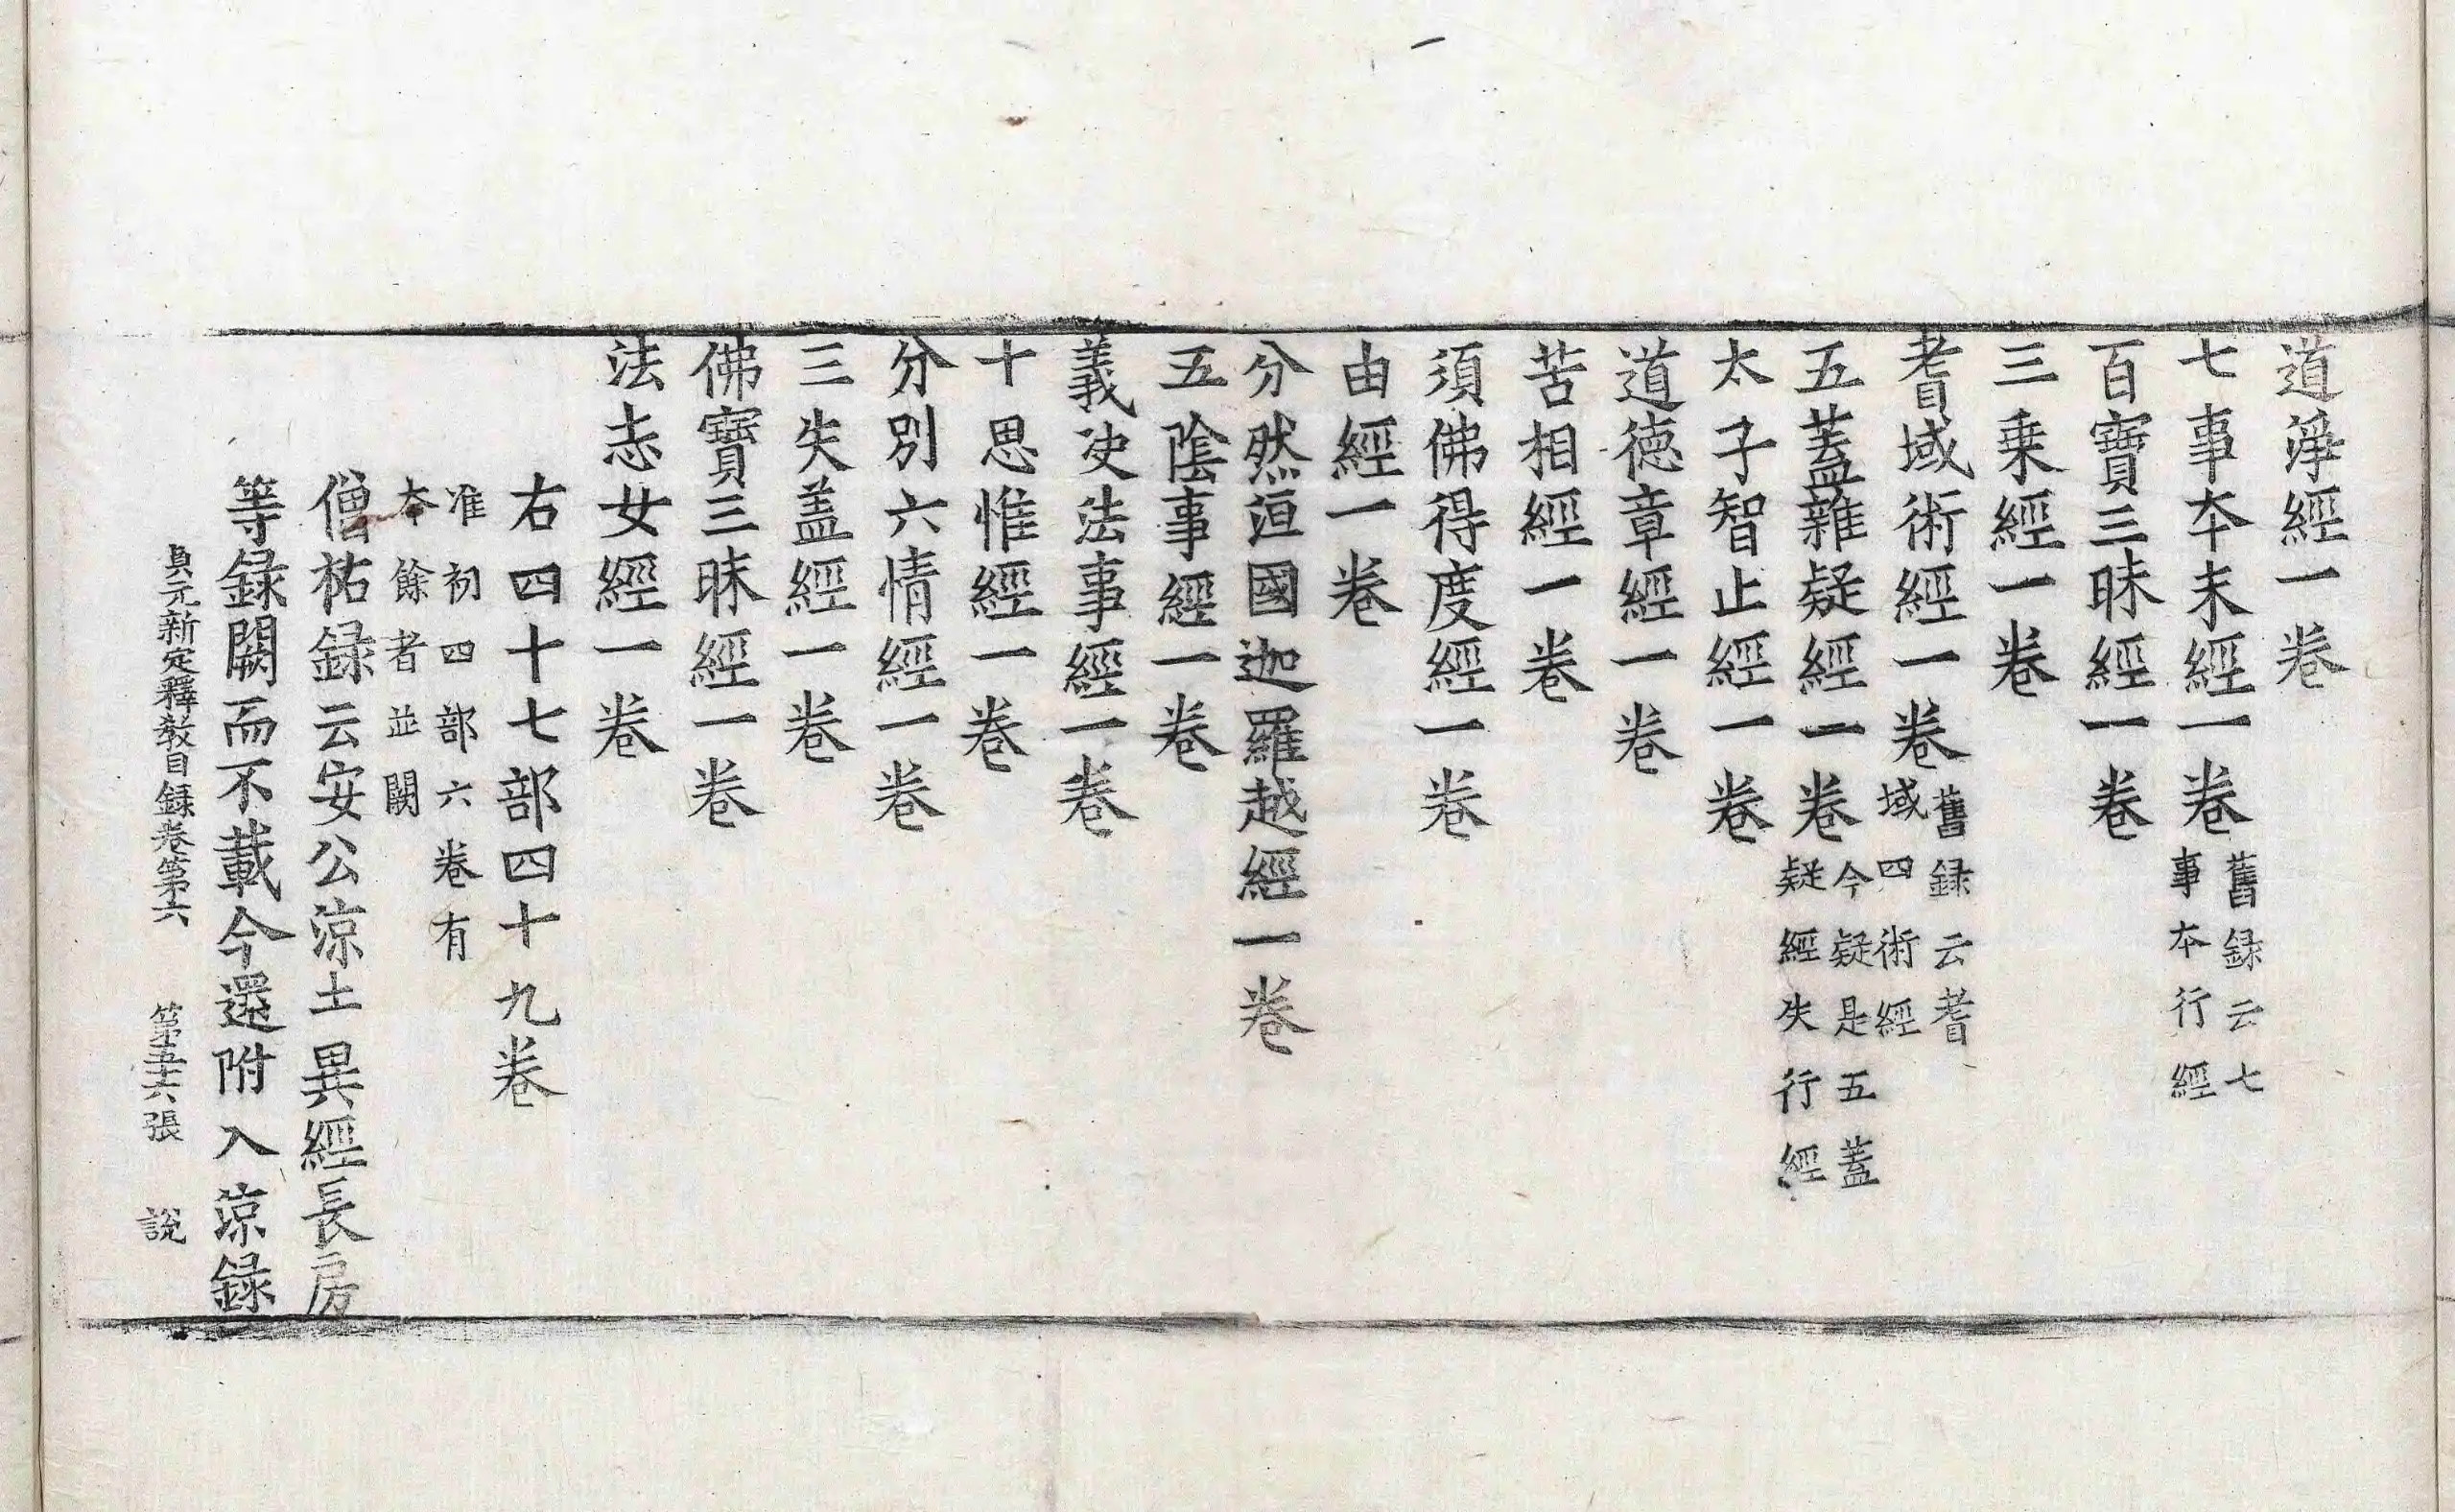 道淨經一卷
七事夲末經一卷舊録云七事夲行經
百寶三昧經一卷
三乗經一卷
耆域術經一卷舊録云耆域四術經
五蓋雜疑經一卷今疑是五蓋疑經失行經
太子智止經一卷
道徳章經一卷
苦相經一卷
須佛得度經一卷
由經一卷
分然洹國迦羅越經一卷
五陰事經一卷
義决法事經一卷
十思惟經一卷
分別六情經一卷
三失盖經一卷
佛寶三昧經一卷
法志女經一卷
右四十七部四十九卷
准初四部六卷有夲餘者並闕
僧祐録云安公涼土異經長房
等録闕而不載今還附入涼録
貞元新定釋教目録卷第六 第五十六張 說